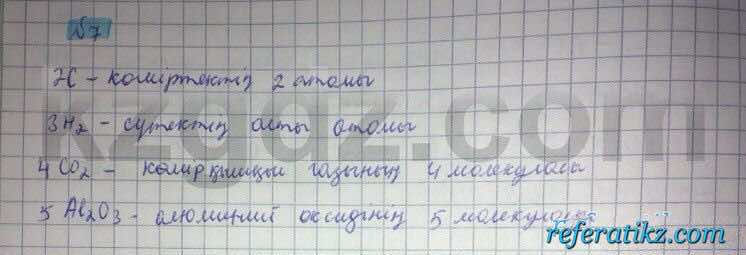 №7
2C - көміртектің 2 атомы
3H₂ - сутектің алты атомы
4 CO₂ - көмірқышқыл газының 4 молекуласы
5 Al₂O₃ - алюминий оксидінің 5 молекуласы
kzgdz.com
referatikz.com